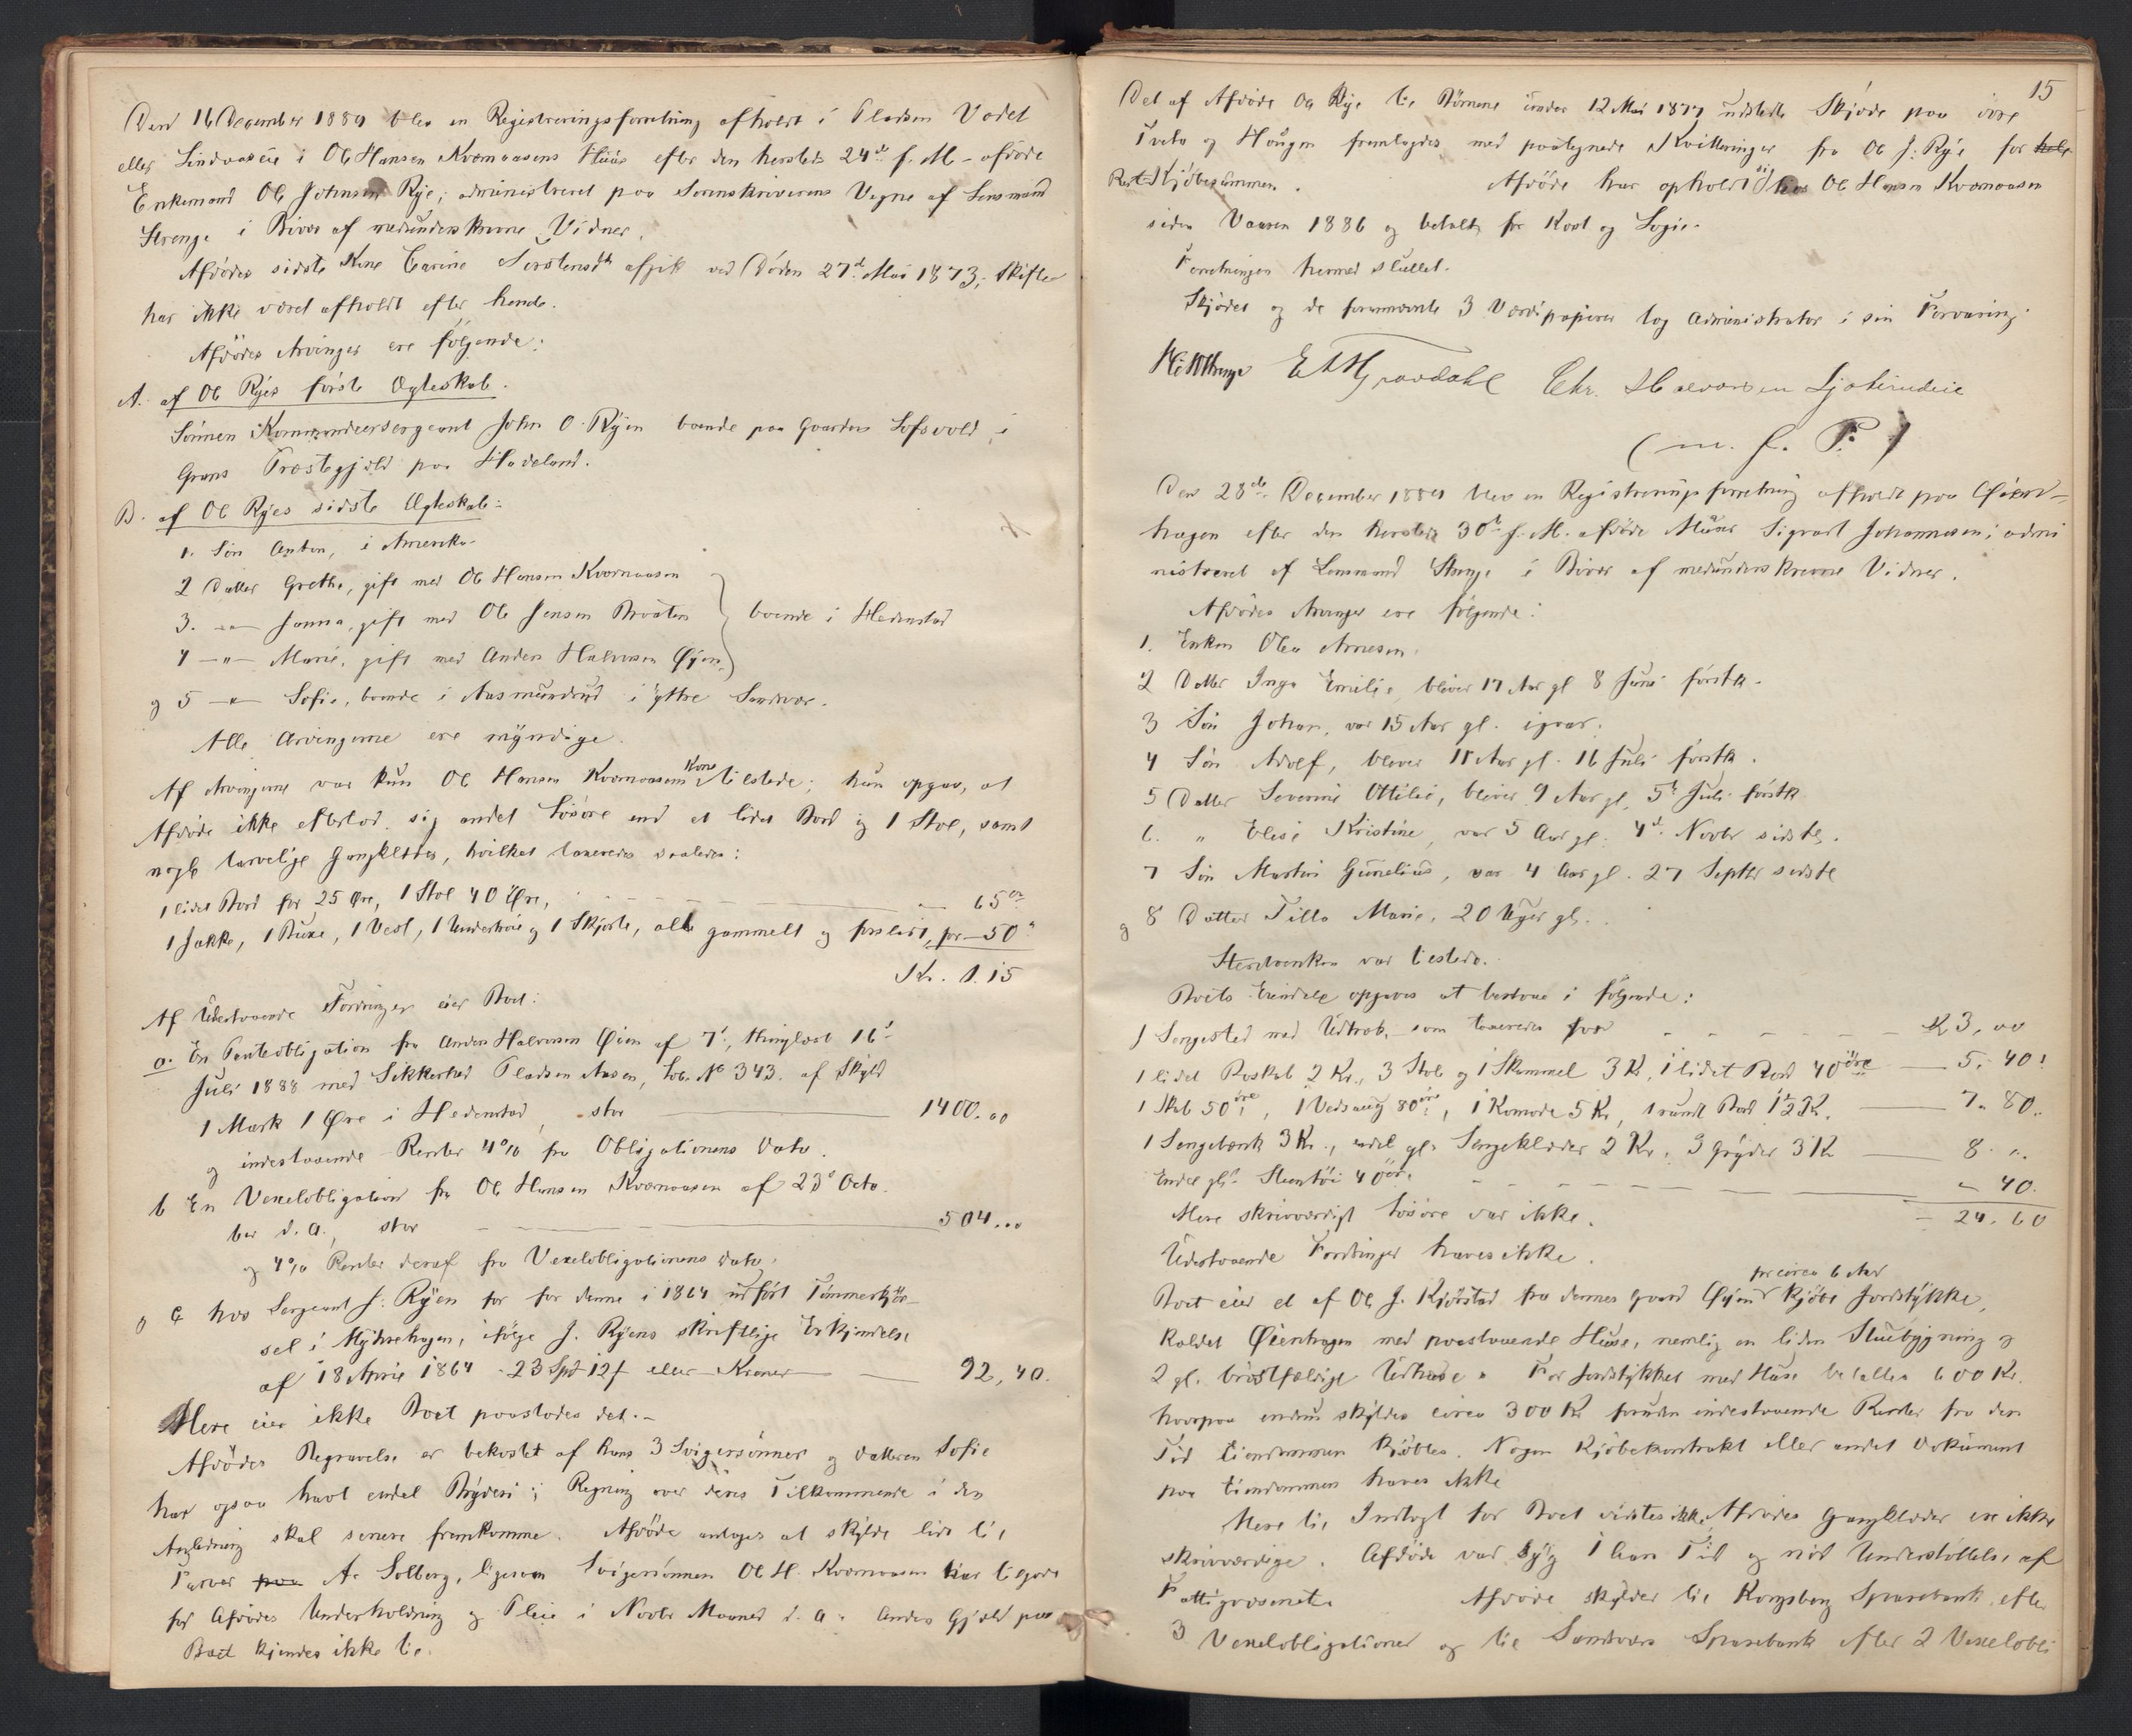 Den 16 December 1889 blev en Registreringsforretning afholdt i Pladsen Vadet
eller Lindaaseie i Ole Hansen Kvernaasens Huus efter den hersteds 24de f. M. afdøde
Enkemand Ole Johnsen Rye; administreret paa Sorenskriverens Vegne af Lensmand
Strenge i Bivær af medunderskrevne Vidner.
Afdødes sidste Kone Carine Torstensdtr afgik ved Døden 27de Mai 1873; Skifte
har ikke været afholdt efter hende.
Afdødes Arvinger ere følgende:
A. af Ole Ryes første Ægteskab.
Sønnen Kommandeersergeant John O. Ryen boende paa Gaarden Lofsvold, i
Grans Præstegjeld paa Hadeland.
B. af Ole Ryes sidste Ægteskab:
1. Søn Anton, i Amerika.
2 Datter Grethe, gift med Ole Hansen Kvernaasen
3. —"— Janna, gift med Ole Jensen Braaten boende i Hedenstad
4 —"— Marie, gift med Anders Halvorsen Øjen
og 5 —"— Sofie, boende i Aasmundrud i yttre Sandsvær.
Alle Arvingerne ere myndige.
Af Arvingerne var kun Ole Hansen Kvernaasens Kone tilstede; hun opgav, at
Afdøde ikke efterlod sig andet Løsøre end et lidet Bord og 1 Stol, samt
nogle tarvelige Gangklæder, hvilket taxeredes saaledes:
1 lidet Bord for 25 Øre, 1 Stol 40 Øre, — 65 ør
1 Jakke, 1 Buxe, 1 Vest, 1 Undertrøie og 1 Skjorte, alle gammelt og forslidt, for — 50 "
Kr. 1.15
Af Udestaaende Fordringer eier Boet:
a. En Panteobligation fra Anders Halvorsen Øien af 7de, thinglæst 16de
Juli 1888 med Sikkerhed Pladsen Aasen, Løbe No 343. af Skyld
1 Mark 1 Øre i Hedenstad, stor — 1400.00
og indestaaende Renter 4% fra Obligationens Dato.
b En Vexelobligation fra Ole Hansen Kvernaasen af 23de Octo
ber d. A., stor — 504...
og 4% Renter deraf fra Vexelobligationens dato.
og c hos Sergeant J. Ryen for for denne i 1864 udført Tømmerkjør-
sel i Myhrehagen, ifølge J. Ryens skriftlige Erkjendelse
af 18 April 1864 - 23 Spd 12 f eller Kroner — 92,40.
Mere eier ikke Boet paastodes det. -
Afdødes Begravelse er bekostet af hans 3 Svigersønner og Datteren Sofie
har ogsaa havt endel Bryderi; Regning over deres Tilkommende i den
Anledning skal senere fremkomme. Afdøde antages at skylde lidt til
Farver paa A. Solberg, ligesom Svigersønnen Ole H. Kvernaasen har tilgode
for Afdødes Underholdning og Pleie i Novbr Maaned d. A. Anden Gjæld paa
Boet kjendes ikke til.
15
Det af Afdøde Ole Rye til Børnene under 12 Mai 1877 udstedte Skjøde paa øvre
Tveto og Haugen fremlagdes med paategnede Kvitteringer fra Ole J. Rye for hele
Rest-Kjøbesummen. Afdøde har opholdt sig hos Ole Hansen Kvernaasen
siden Vaaren 1886 og betalt for Kost og Logie.
Forretningen hermed sluttet.
Skjødet og de forannævnte 3 Værdipapirer tog Administrator i sin Forvaring.
Strenge E A Gravdahl Chr. Halvorsen
(m. f. P.)
Den 28de December 1889 blev en Registreringsforretning afholdt paa Øien-
hagen efter den hersteds 30te f. M. afdøde Murer Sigvart Johannesen; admi
nistreret af Lensmand Strenge i Bivær af medunderskrevne Vidner.
Afdødes Arvinger ere følgende:
1. Enken Olea Arnesen.
2 Datter Inga Emilie, bliver 17 Aar gl 8 Juni førstk.
3 Søn Johan, var 15 Aar gl. igaar.
4 Søn Adolf, bliver 11 Aar gl. 16 Juli førstk.
5 Datter Severine Ottilie, bliver 9 Aar gl. 5te Juli førstk
6. " Elise Kristine, var 5 Aar gl. 4de Novbr sidstl.
7 Søn Martin Gunelius, var 4 Aar gl. 27 Septbr sidstl
og 8 Datter Tilla Marie, 20 Uger gl.
Stervboenken var tilstede.
Boets Eiendele opgaves at bestaae i følgende:
1 Sengested med Udtræk, som taxeredes for — K 3,00
1 lidet Roskab 2 Kr., 3 Stole og 1 Skammel 3 K, 1 lidet Bord 40 øre — 5. 40.
1 Skab 50 øre, 1 Vedsaug 80 øre, 1 Komode 5 Kr, 1 rundt Bord 1½ K. — 7. 80.
1 Sengebænk 3 Kr., endel gl. Sengeklæder 2 Kr., 3 Gryder 3 K — 8. "
Endel gl. Steentøi 40 ør. — " 40.
Mere skrivværdigt Løsøre var ikke. — 24. 60
Udestaaende Fordringer haves ikke.
for circa 6 Aar
Boet eier et af Ole J. Kjørstad fra dennes Gaard Øyen kjøbt Jordstykke,
kaldet Øienhagen med paastaaende Huse, nemlig en liden Stuebygning og
2 gl. brøstfældige Udhuse. For Jordstykket med Huse betaltes 600 Kr.
hvorpaa endnu skyldes circa 300 Kr foruden indestaaende Renter fra den
Tid Eiendommen kjøbtes. Nogen Kjøbekontrakt eller andet Dokument
paa Eiendommen haves ikke
Mere til Indtægt for Boet vidstes ikke. Afdødes Gangklæder ere ikke
skrivværdige. Afdøde var syg 1 Aars Tid og nød Understøttelse af
Fattigvæsenet. Afdøde skylder til Kongsberg Sparebank efter
3 Vexelobligationer og til Sandsværs Sparebank efter 2 Vexelobli